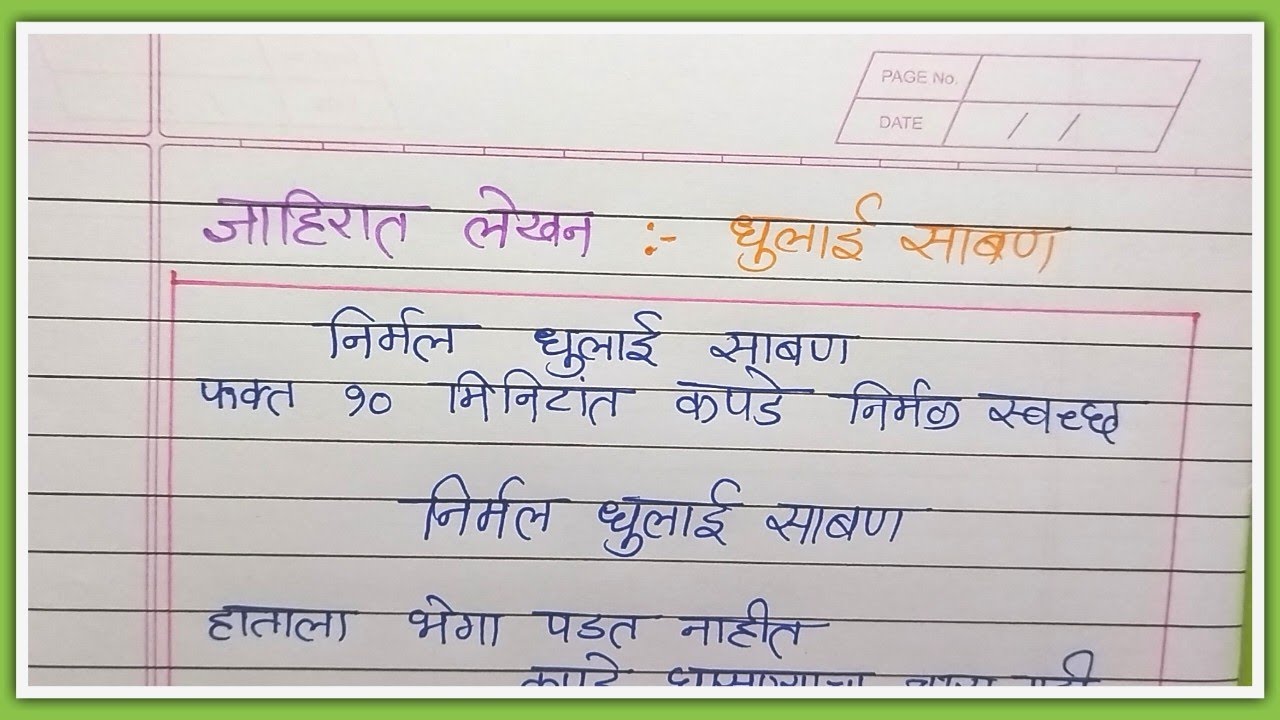 PAGE No.
DATE / /
जाहिरात लेखन :- धुलाई साबण
निर्मल धुलाई साबण
फक्त १० मिनिटांत कपडे निर्मळ स्वच्छ
निर्मल धुलाई साबण
हाताला भेगा पडत नाहीत
कपडे